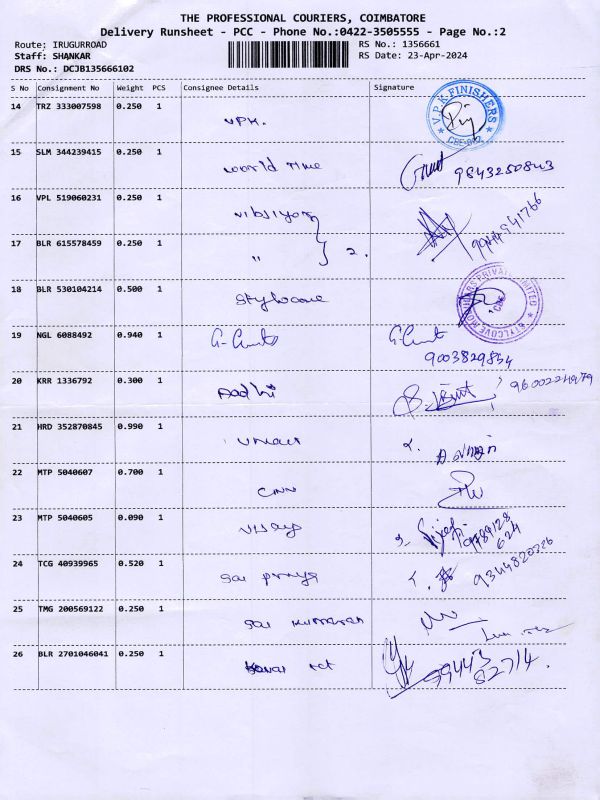 THE PROFESSIONAL COURIERS, COIMBATORE
Delivery Runsheet - PCC - Phone No.:0422-3505555 - Page No.:2
Route: IRUGURROAD RS No.: 1356661
Staff: SHANKAR RS Date: 23-Apr-2024
DRS No.: DCJB135666102
S No Consignment No Weight PCS Consignee Details Signature
14 TRZ 333007598 0.250 1 VPK. V.P.K FINISHERS
15 SLM 344239415 0.250 1 World Time 9843250843
16 VPL 519060231 0.250 1
17 BLR 615578459 0.250 1 " } 2.
18 BLR 530104214 0.500 1 STYLCOVE MOULDERS PRIVATE LIMITED
19 NGL 6088492 0.940 1
9003829834
20 KRR 1336792 0.300 1 Aadhi
21 HRD 352870845 0.990 1
22 MTP 5040607 0.700 1 CNN
23 MTP 5040605 0.090 1 Vijay 9789128
624
24 TCG 40939965 0.520 1 Sai Priya 9344820226
25 TMG 200569122 0.250 1 Sai Kumaran
26 BLR 2701046041 0.250 1 99443
82714.